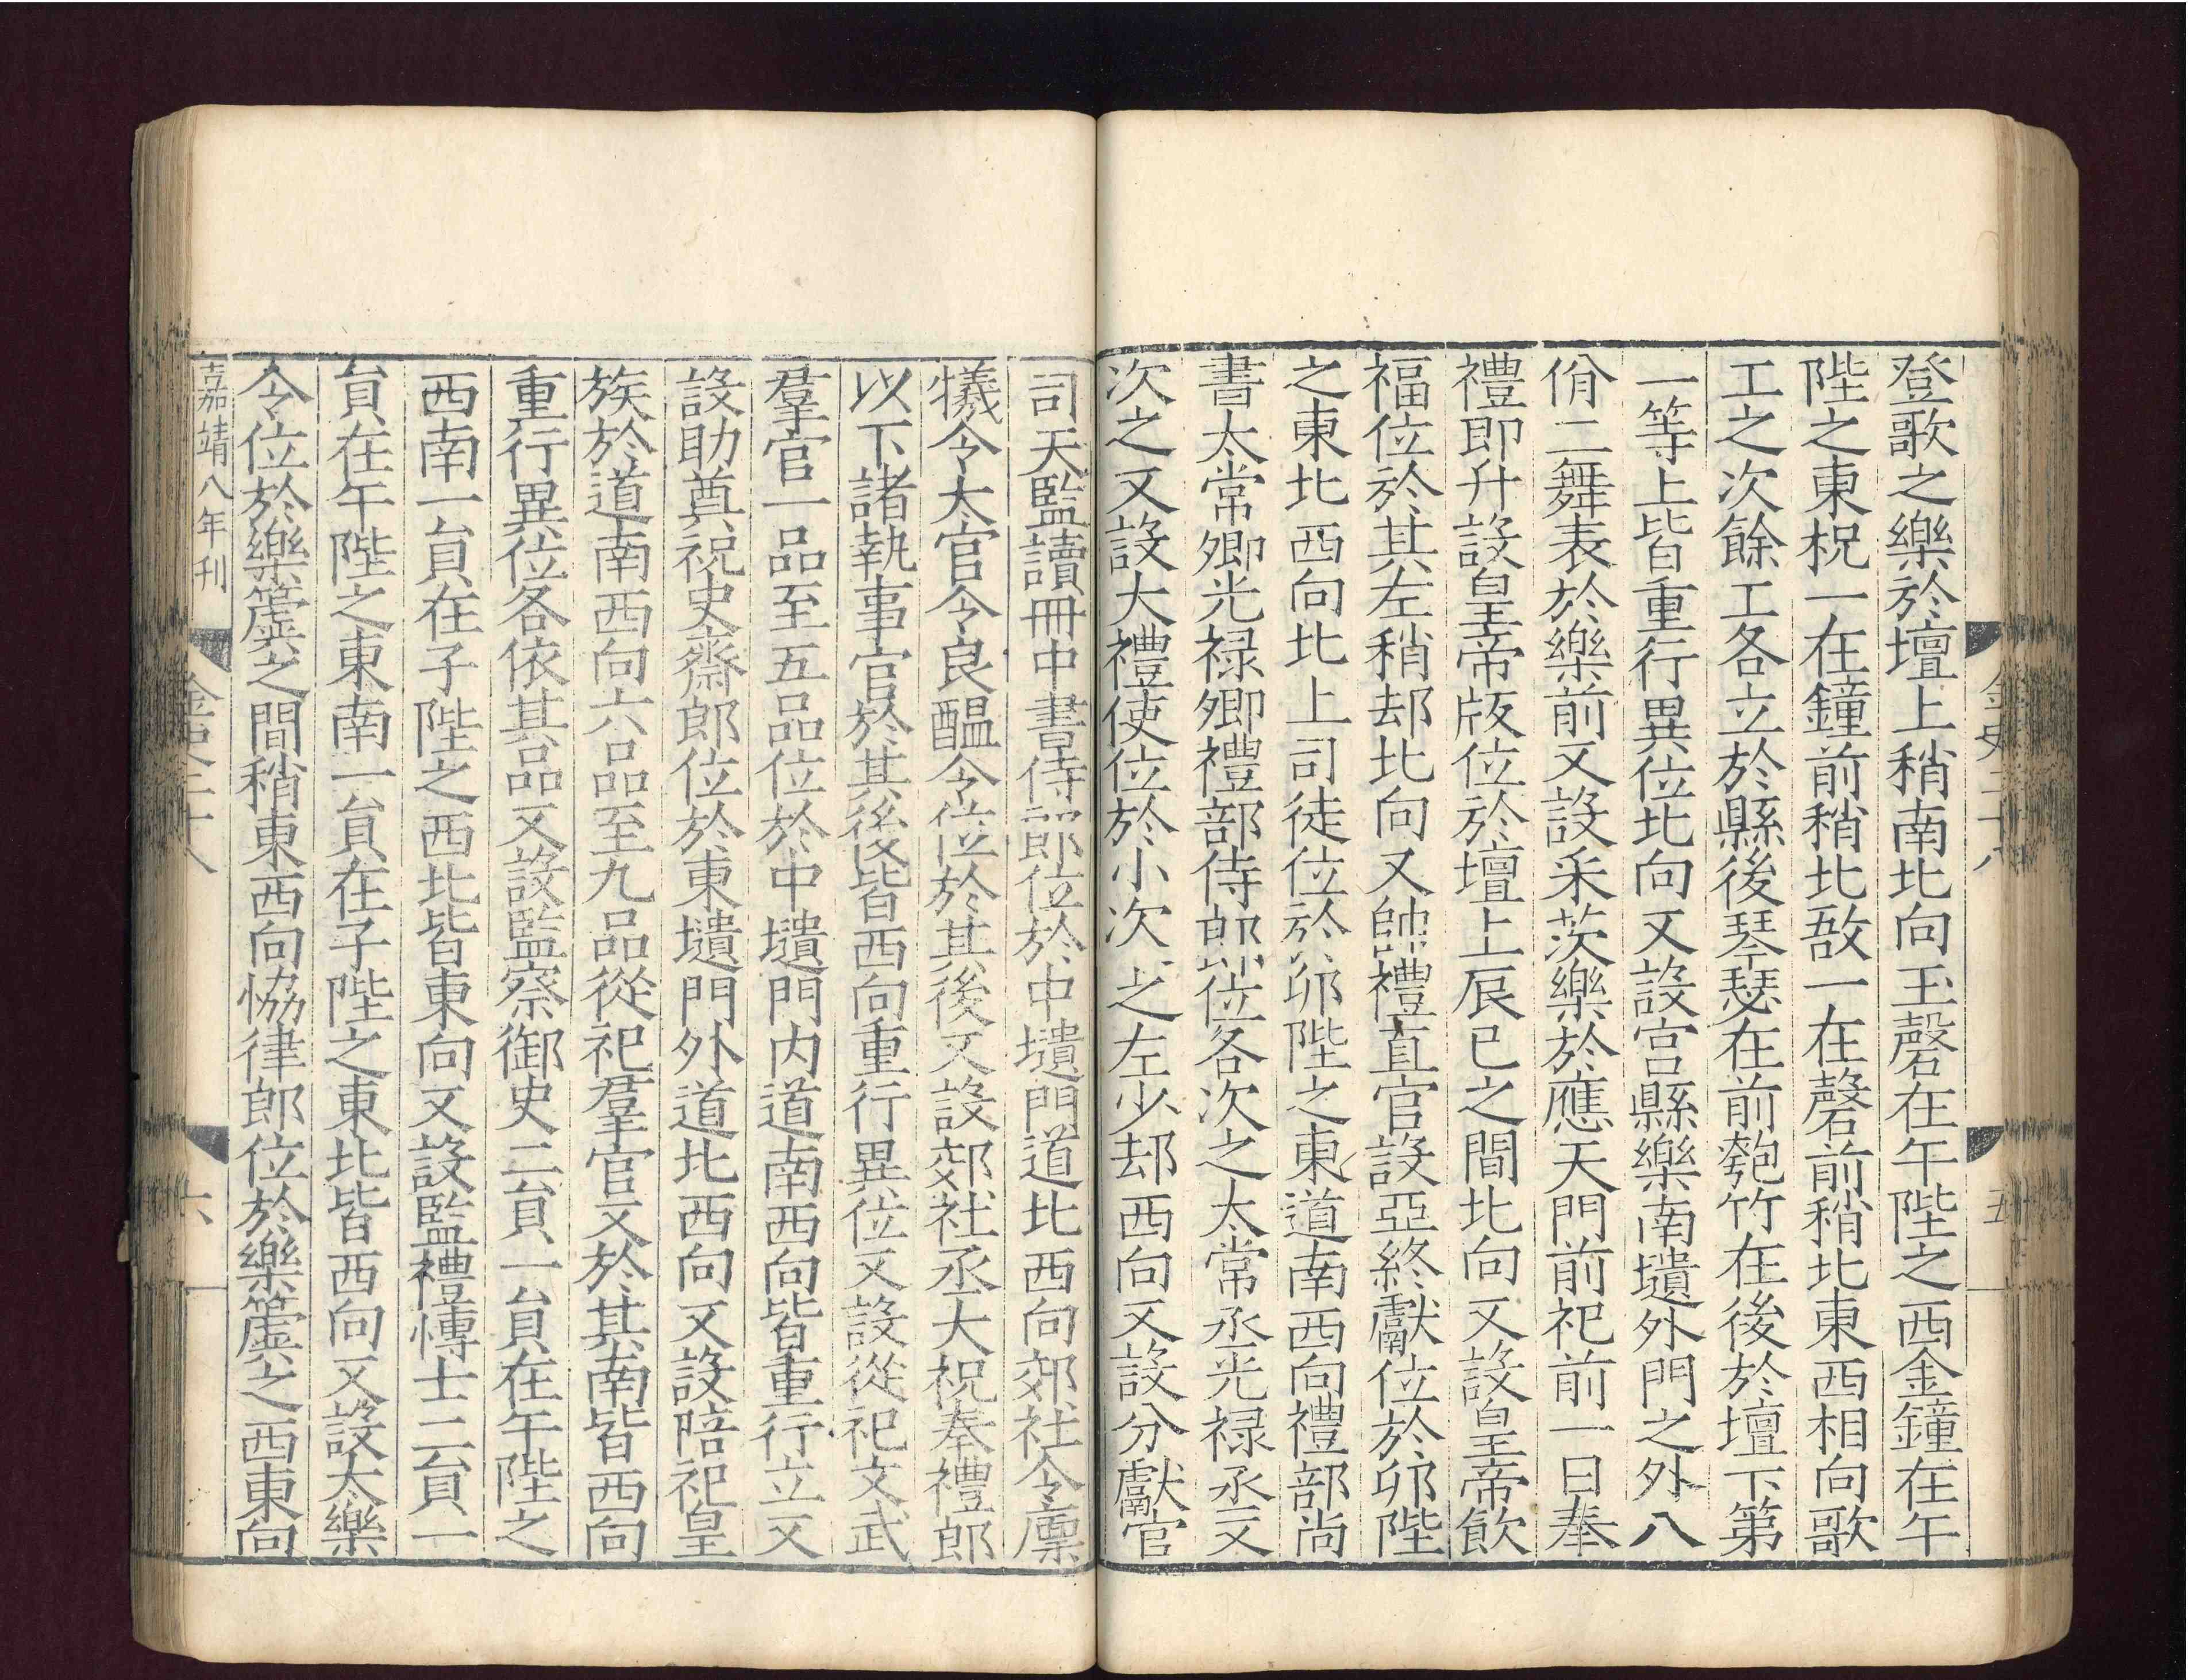 登歌之樂於壇上稍南北向玉磬在午陛之西金鐘在午
陛之東柷一在鐘前稍北敔一在磬前稍北東西相向歌
工之次餘工各立於縣後琴瑟在前匏竹在後於壇下第
一等上皆重行異位北向又設宫縣樂南壝外門之外八
佾二舞表於樂前又設采茨樂於應天門前祀前一日奉
禮即升設皇帝版位於壇上辰巳之間北向又設皇帝飲
福位於其左稍却北向又帥禮直官設亞終獻位於卯陛
之東北西向北上司徒位於卯陛之東道南西向禮部尚
書太常卿光禄卿禮部侍郎位各次之太常丞光禄丞又
次之又設大禮使位於小次之左少却西向又設分獻官
金史三十八
五
司天監讀冊中書侍郎位於中壝門道北西向郊社令廪
犧令太官令良醖令位於其後又設郊社丞大祝奉禮郎
以下諸執事官於其後皆西向重行異位又設從祀文武
羣官一品至五品位於中壝門内道南西向皆重行立又
設助奠祝史齋郎位於東壝門外道北西向又設陪祀皇
族於道南西向六品至九品從祀羣官又於其南皆西向
重行異位各依其品又設監察御史二員一員在午陛之
西南一員在子陛之西北皆東向又設監禮博士二員一
員在午陛之東南一員在子陛之東北皆西向又設太樂
令位於樂簴之間稍東西向恊律郎位於樂簴之西東向
嘉靖八年刊
金史二十八
六